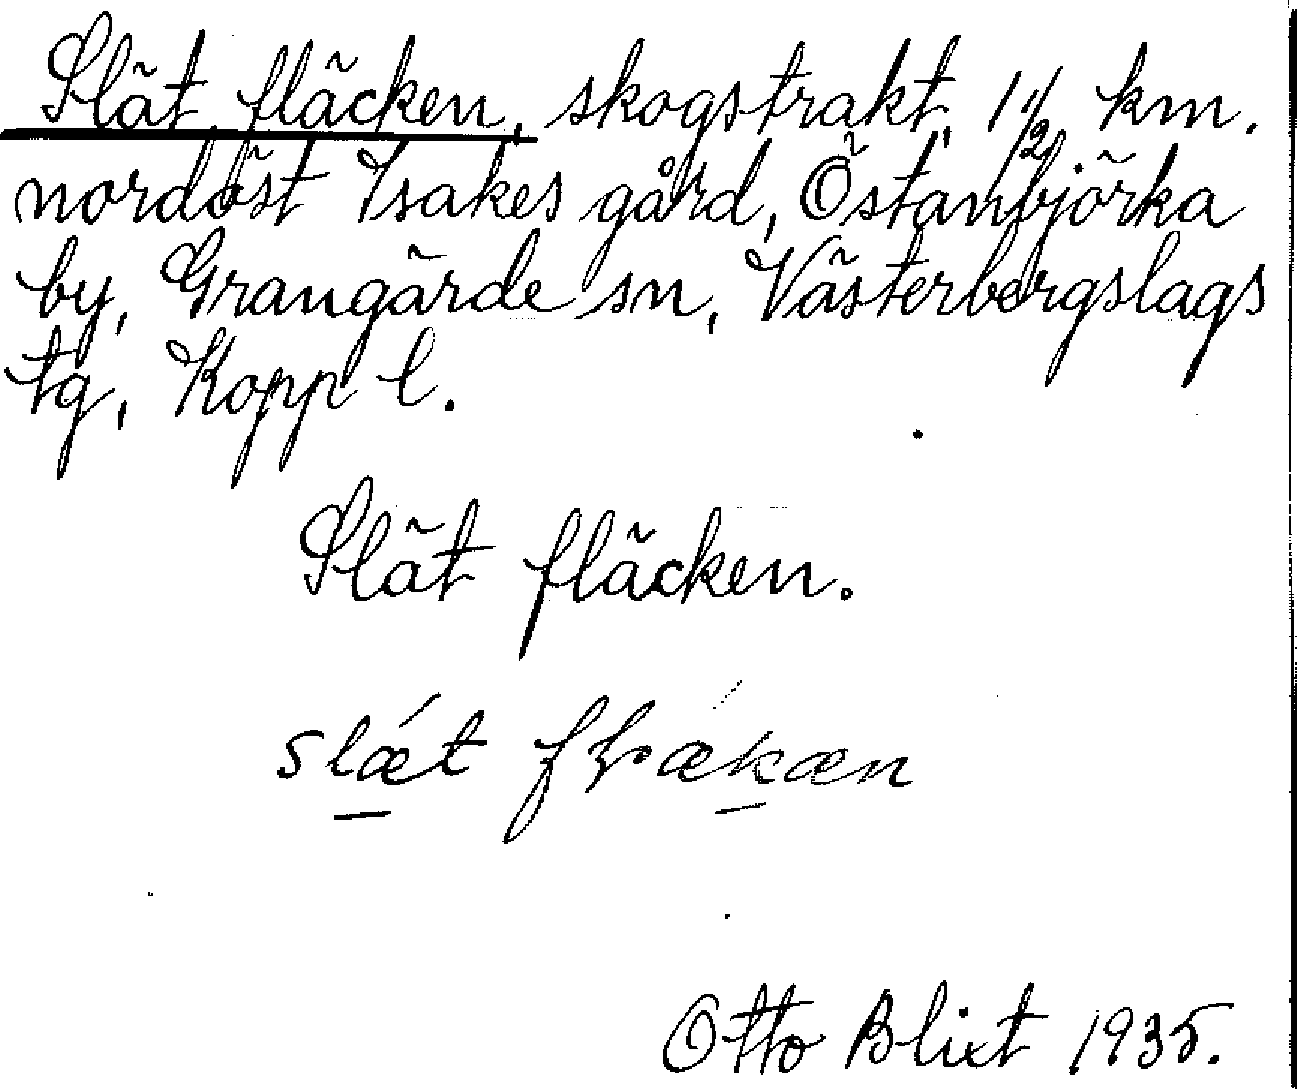 Slät fläcken, skogstrakt, 1 1/2 km.
nordöst Isakes gård, Östanbjörka
by, Grangärde sn, Västerbergslags
tg, Kopp l.
Slät fläcken.
slǽt fḷækæn
Otto Blixt 1935.